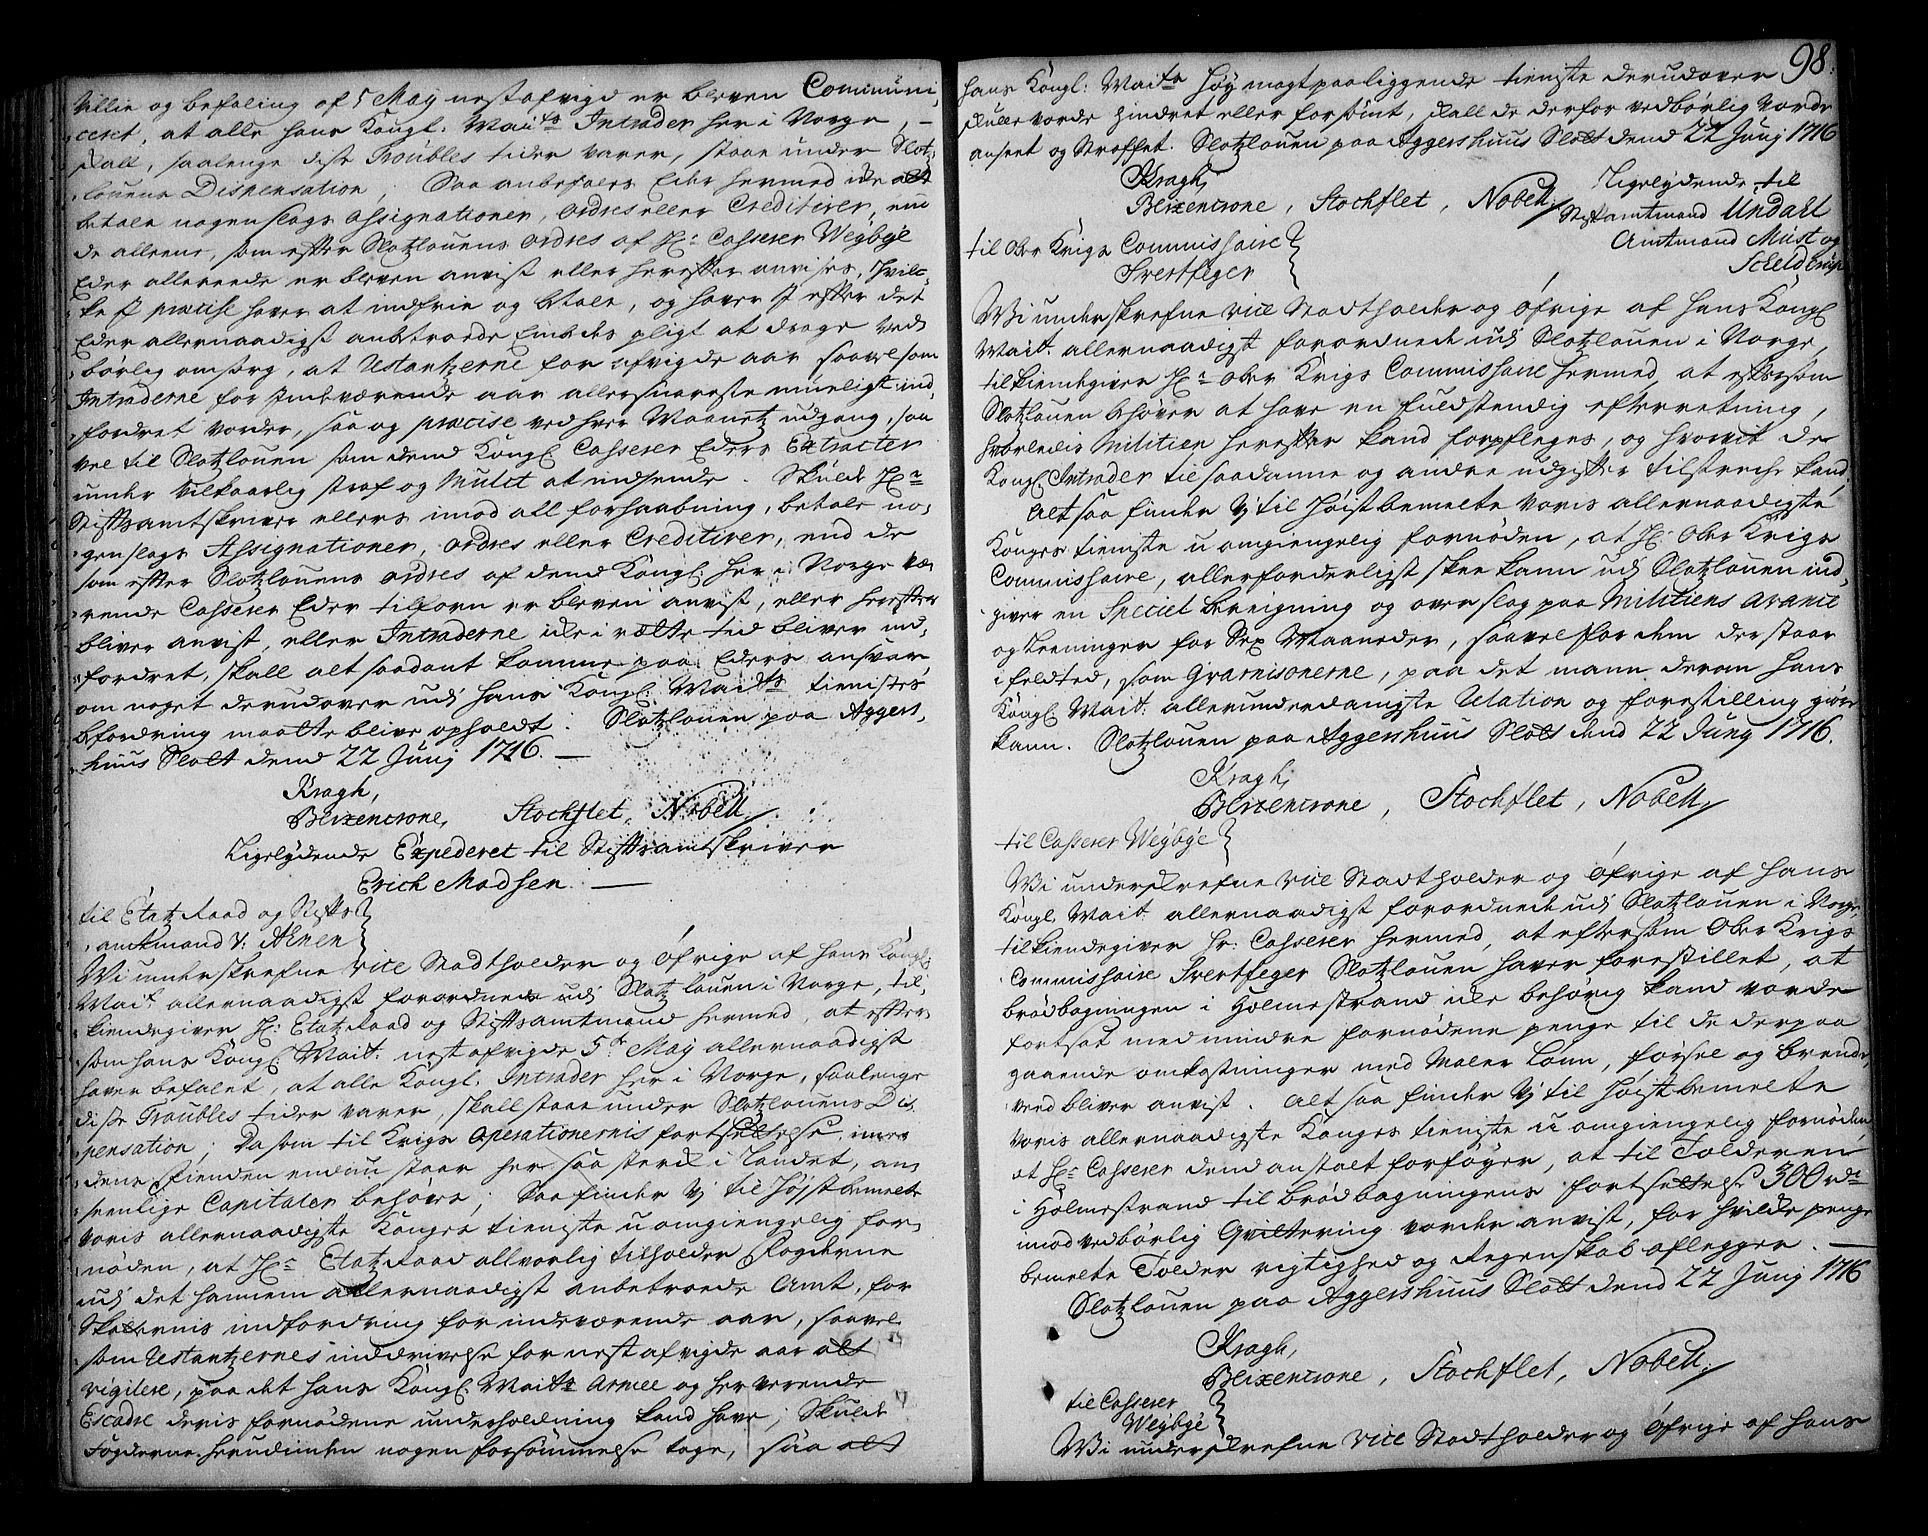 Villie og befaling af 5 May nest afvigt er bleven Communi,
ceret, at alle hans Kongl: Maits Intrader her i Norge, —
skall, saalenge disse Troubles tider varer, staae under Slotz,
louens Dispensation; Saa anbefales Eder hermed icke at
betale nogenslags Assignationer, ordres eller Creditiver, end
de alleene, som efter Slotzlouens ordres af Hr: Casserer Wegbye
Eder allereede er bleven anvist eller herefter anvises, hvil,
ke I præcise haver at indfrie og betale, og haver I efter det
Eder allernaadigst anbetroede Embeds pligt at drage ved,
børlig omsorg, at Restantzerne for afvigde aar saavelsom
Intraderne for indeværende aar allersnareste mueligt ind,
fordret vorder, saa og præcise ved hver Maanetz udgang, saa
vel til Slotzlouen som dend Kongl. Casserer Eders Extracter
under vilkaarlig straf og Mulct at indsende. Skulde Hr:
Stiftsamtskriver ellers imod all forhaabning, betale no,
genslags Assignationer, ordres eller Creditiver, end de
som efter Slotzlouens ordres af dend Kongl: her i Norge væ,
rende Casserer Eder tilforn er bleven anvist, eller herefter
bliver anvist, eller Intraderne icke i rætte tid bliver ind,
fordret, skall alt saadant komme paa Eders ansvar,
om noget derudover udi Hans Kongl: Maits tienistes
befordring maatte blive opholdt. Slotzlouen paa Aggers,
huus Slott dend 22 Junij 1716. —
Kragh,
Blixencrone, Stochflet, Nobell
Ligelydende Expederet til Stiftsamtskriver
Erich Madsen. —
til Etatz Raad og Stifts
amtmand V: Ahnen
Wi underskrefne Vice Stadtholder og Øfrige af Hans Kongl:
Mait. allernaadigst forordnede udi Slotzlouen i Norge, til,
kiendegiver Hr: Etatz Raad og Stiftsamtmand hermed, at efter,
som hans Kongl. Mait. nest afvigde 5te May allernaadigst
haver befalet, at alle Kongl. Intrader her i Norge, saalenge
disse Troubles tider varer, skall staae under Slotzlouens Dis,
pensation; Da som til Krigs Operationernis fortsettelse, imens
dend Fienden endnu staar her saa sterck i Landet, an,
seenlige Capitaler behøves; Saa finder Vj til Høistbemelte
voris allernaadigste Konges tieniste uomgiengelig for,
nøden, at Hr: Etatz Raad allvorlig tilholder Fogderne
udi det hannem allernaadigst anbetroede Amt, for
Skatternis indfordring for indeværende aar, saavel
som Restantzernes inddrivelse for nest afvigde aar at
vigilere, paa det Hans Kongl. Maits Armee og herverende
Escadre deris fornødene underholdning kand have; Skulde
Fogderne herudinden nogen forsømmelse tage, saa at
98.
Hans Kongl: Maits høy magtpaaliggende tieniste derudover
skulle vorde hindret eller forsømt, skall de derfor vedbørlig vorde
anseet og straffet. Slotzlouen paa Aggershuus Slott dend 22 Junij 1716
Kragh,
Blixencrone, Stochflet, Nobell
Ligelydende til
Stiftamtmand Undall
Amtmand Must og
Schelderup
til Ober Krigs Commissaire
Svertfeger
Wi underskrefne Vice Stadtholder og Øfrige af Hans Kongl
Mait. allernaadigst forordnede udi Slotzlouen i Norge,
tilkiendegiver Hr: Ober Krigs Commissaire hermed, at eftersom
Slotzlouen behøver at have en fuldstendig efterretning,
hvorledis Militien herefter kand forpfleges, og hvorvit de
Kongl. Intrader til saadanne og andre udgifter tilstreche kand,
Alt saa finder Vj til Høistbemelte voris allernaadigste
Konges tieniste uomgiengelig fornøden, at Hr: Ober Krigs
Commissaire, allerforderligst skee kann udi Slotzlouen ind,
giver en Speciel bereigning og overslag paa Militiens Avance
og Leeninger for Sex Maaneder, saavel for dem der staar
i feldted, som Gvarnisonerne, paa det mann derom Hans
Kongl Mait. allerunderdanigste Relation og forestilling giøre
kann. Slotzlouen paa Aggershuus Slott dend 22 Junij 1716.
Kragh,
Blixencrone, Stochflet, Nobell
til Casserer Wegbye
Wi underskrefne Vice Stadtholder og Øfrige af Hans
Kongl. Mait. allernaadigst forordnede udi Slotzlouen i Norge,
tilkiendegiver Hr: Casserer hermed, at eftersom Ober Krigs
Commissaire Svertfeger Slotzlouen haver forestillet, at
brødbagningen i Holmestrand icke behørig kand vorde
fortsat med mindre fornødene penge til de derpaa
gaaende omkostninger med Maler Lønn, førsel og brende,
veed bliver anvist. Alt saa finder Vj til Høistbemelte
voris allernaadigste Konges tieniste uomgiengelig fornøden,
at Hr: Casserer dend anstalt forføyer, at til Tolderen
i Holmestrand til brødbagningens fortsettelse 300 rdr
imod vedbørlig Qvittering vorder anvist, for hvilcke penge
bemelte Tolder rigtighed og Regenskab aflegger. —
Slotzlouen paa Aggershuus Slott dend 22 Junij 1716
Kragh,
Blixencrone, Stochflet, Nobell.
til Casserer
Wegbye
Wi underskrefne Vice Stadtholder og Øfrige af Hans